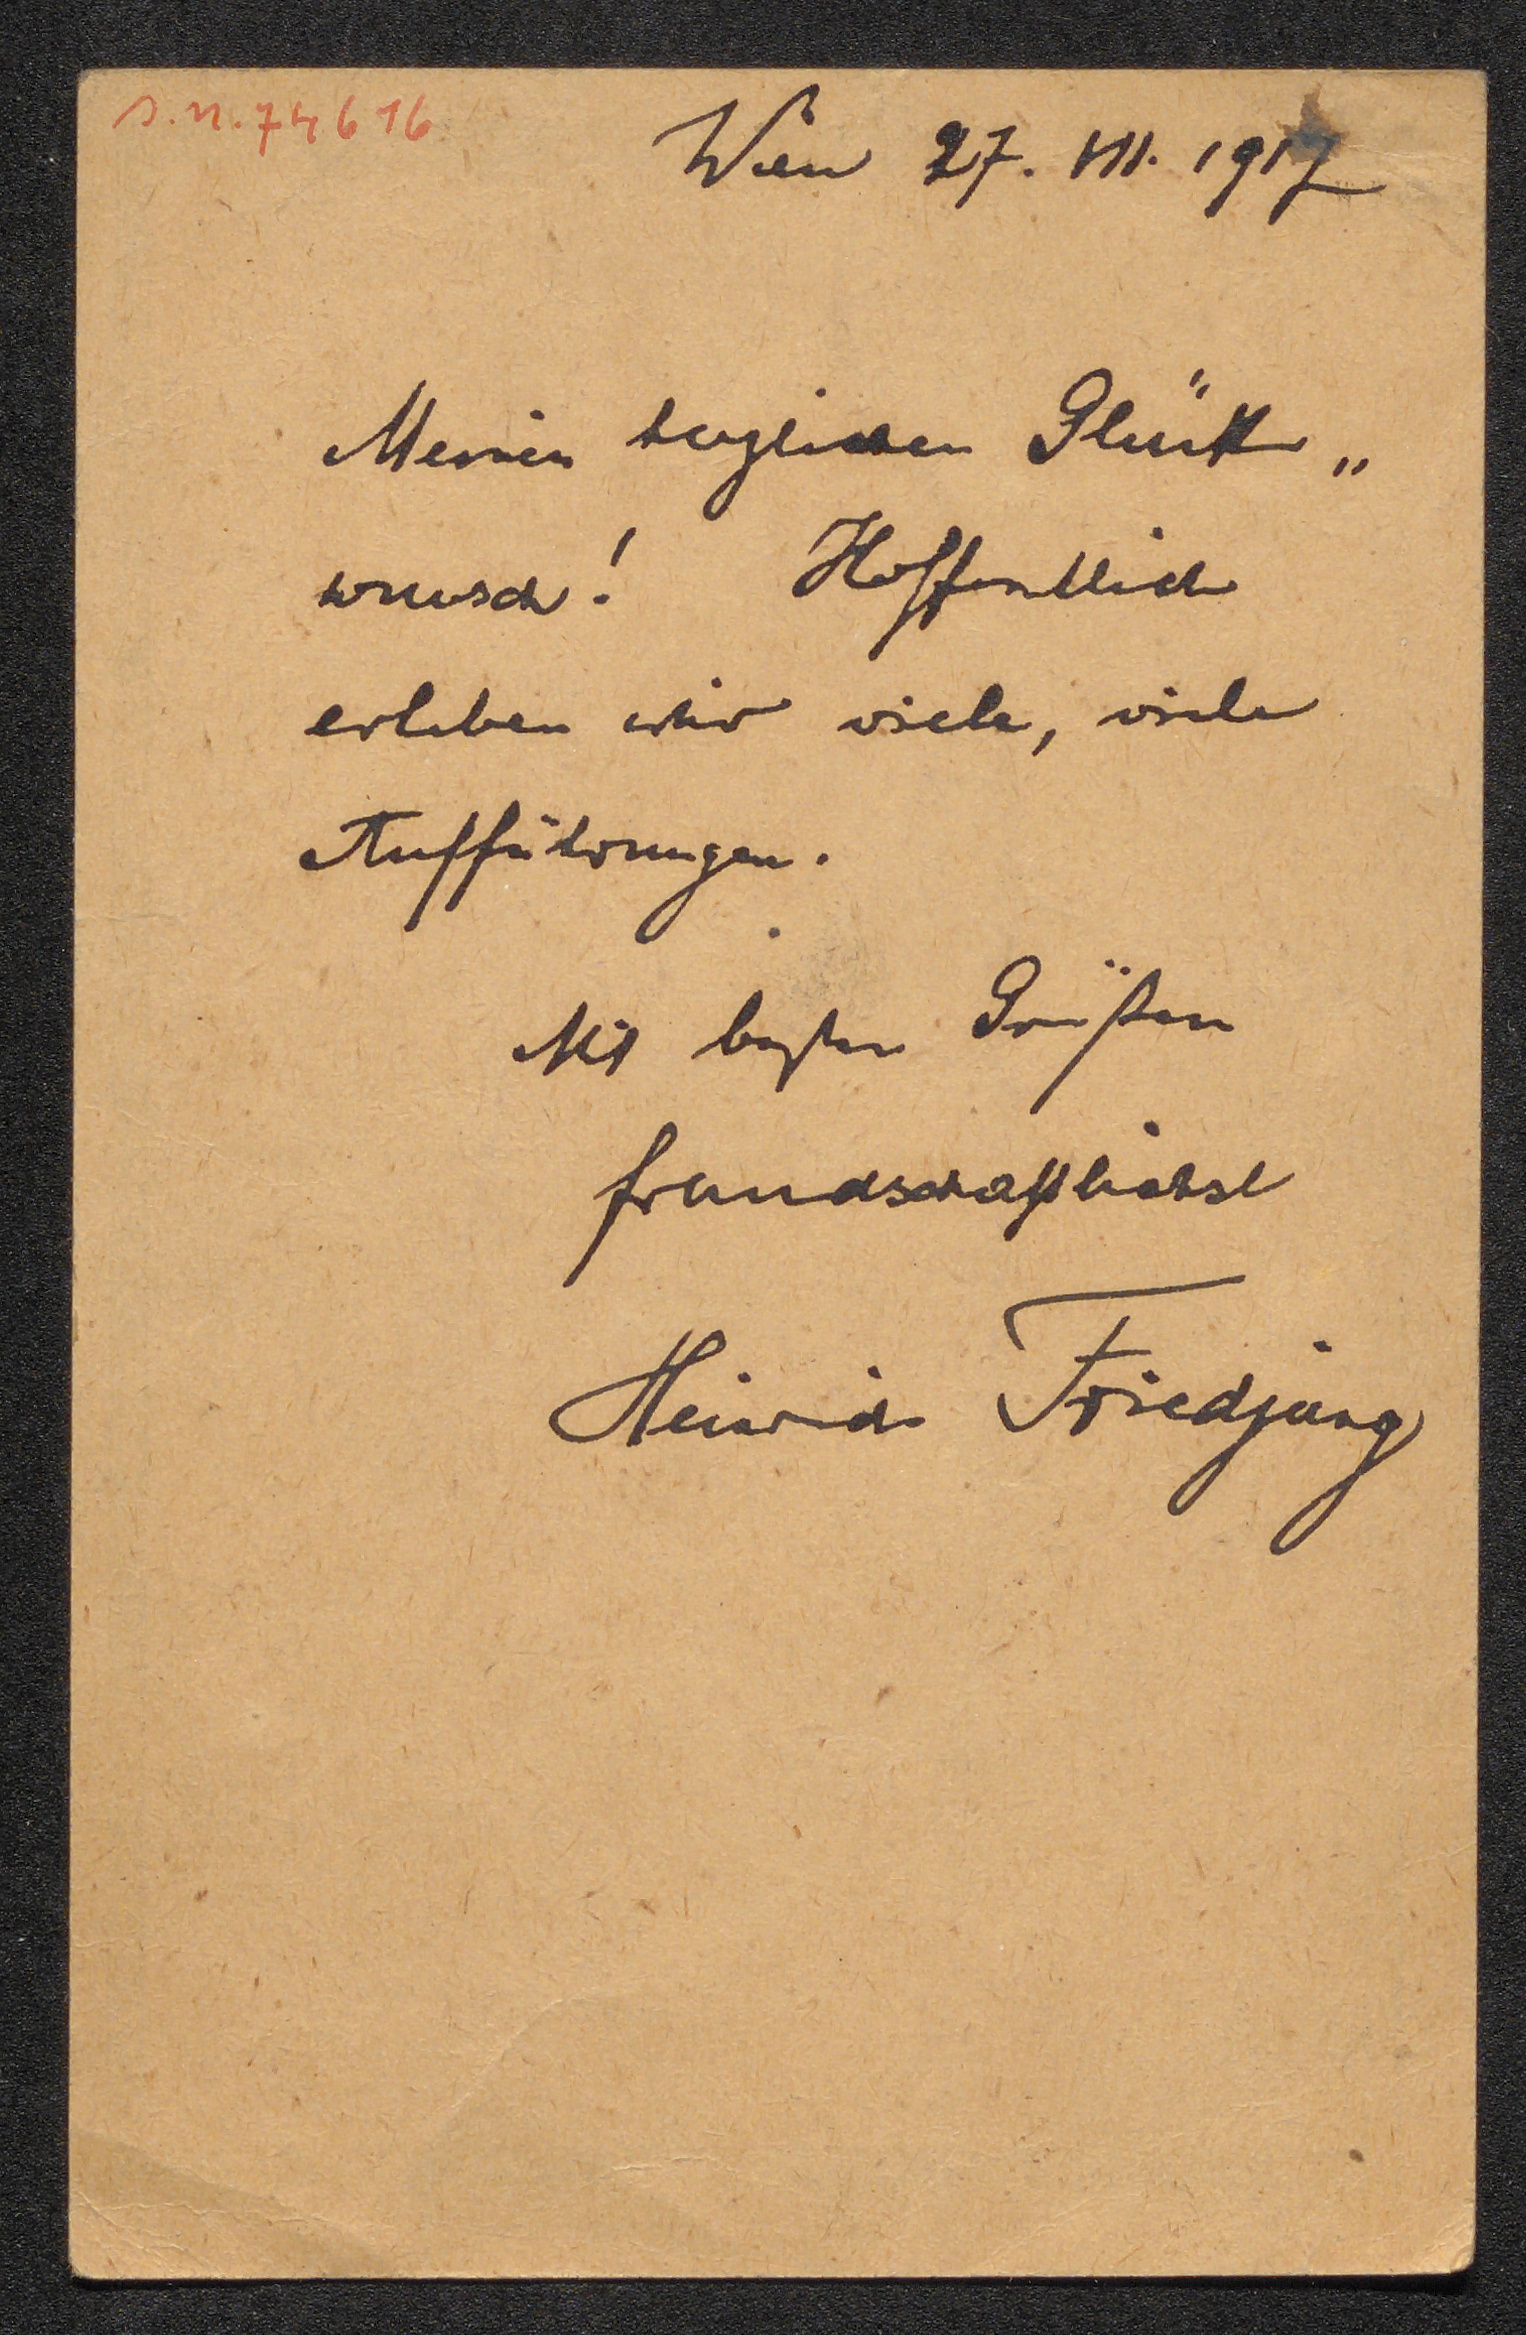 J.N. 74616
Wien 27. VIII. 1917
Meinen herzlichen Glück„
wunsch! Hoffentlich
erleben wir viele, viele
Aufführungen.
Mit besten Grüßen
freundschaftlichst
Heinrich Friedjung